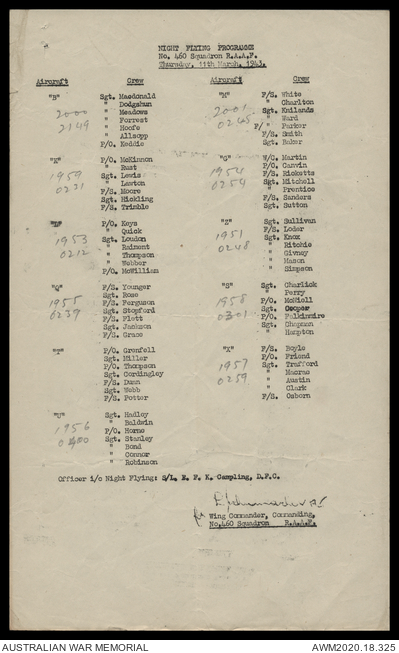 NIGHT FLYING PROGRAMME
No. 460 Squadron R.A.A.F.
Thursday, 11th March, 1943.
Aircraft Crew
"B" Sgt. Macdonald
2000 " Dodgshun
2149 " Meadows
" Forrest
" Hoofe
" Allsopp
P/O. Keddie
"K" P/O. McKinnon
1959 " Rust
0231 Sgt. Lewis
" Lawton
F/S. Moore
Sgt. Hickling
F/S. Trimble
"L" P/O. Keys
1953 " Quick
0212 Sgt. Loudon
" Raiment
" Thompson
" Webber
P/O. McWilliam
"Q" F/S. Younger
1955 Sgt. Rose
0239 F/S. Ferguson
Sgt. Stopford
F/S. Flett
Sgt. Jackson
F/S. Grace
P/O. Grenfell
Sgt. Miller
P/O. Thompson
Sgt. Cordingley
F/S. Dunn
Sgt. Webb
F/S. Potter
"U" Sgt. Hadley
1956 " Baldwin
P/O. Horne
Sgt. Stanley
" Bond
" Connor
" Robinson
Aircraft Crew
"M" F/S. White
2001 " Charlton
0245 Sgt. Knilands
" Ward
F/ " Parker
F/S. Smith
Sgt. Baker
"G" W/C. Martin
1954 P/O. Canvin
0254 F/S. Ricketts
Sgt. Mitchell
" Prentice
F/S. Sanders
Sgt. Sutton
"Z" Sgt. Sullivan
1951 F/S. Loder
0248 Sgt. Knox
" Ritchie
" Givney
" Mason
" Simpson
"S" Sgt. Charlick
1958 " Perry
0301 P/O. McNiell
Sgt. Cooper
P/O. Falkinmire
Sgt. Dhapman
" Hampton
"X" F/S. Boyle
1957 P/O. Friend
0259 Sgt. Trafford
" Macrae
" Austin
" Clark
F/S. Osborn
Officer i/c Night Flying: S/L. E. F. K. Campling, D.F.C.
for Wing Commander, Commanding,
No.460 Squadron R.A.A.F.
AUSTRALIAN WAR MEMORIAL AWM2020.18.325